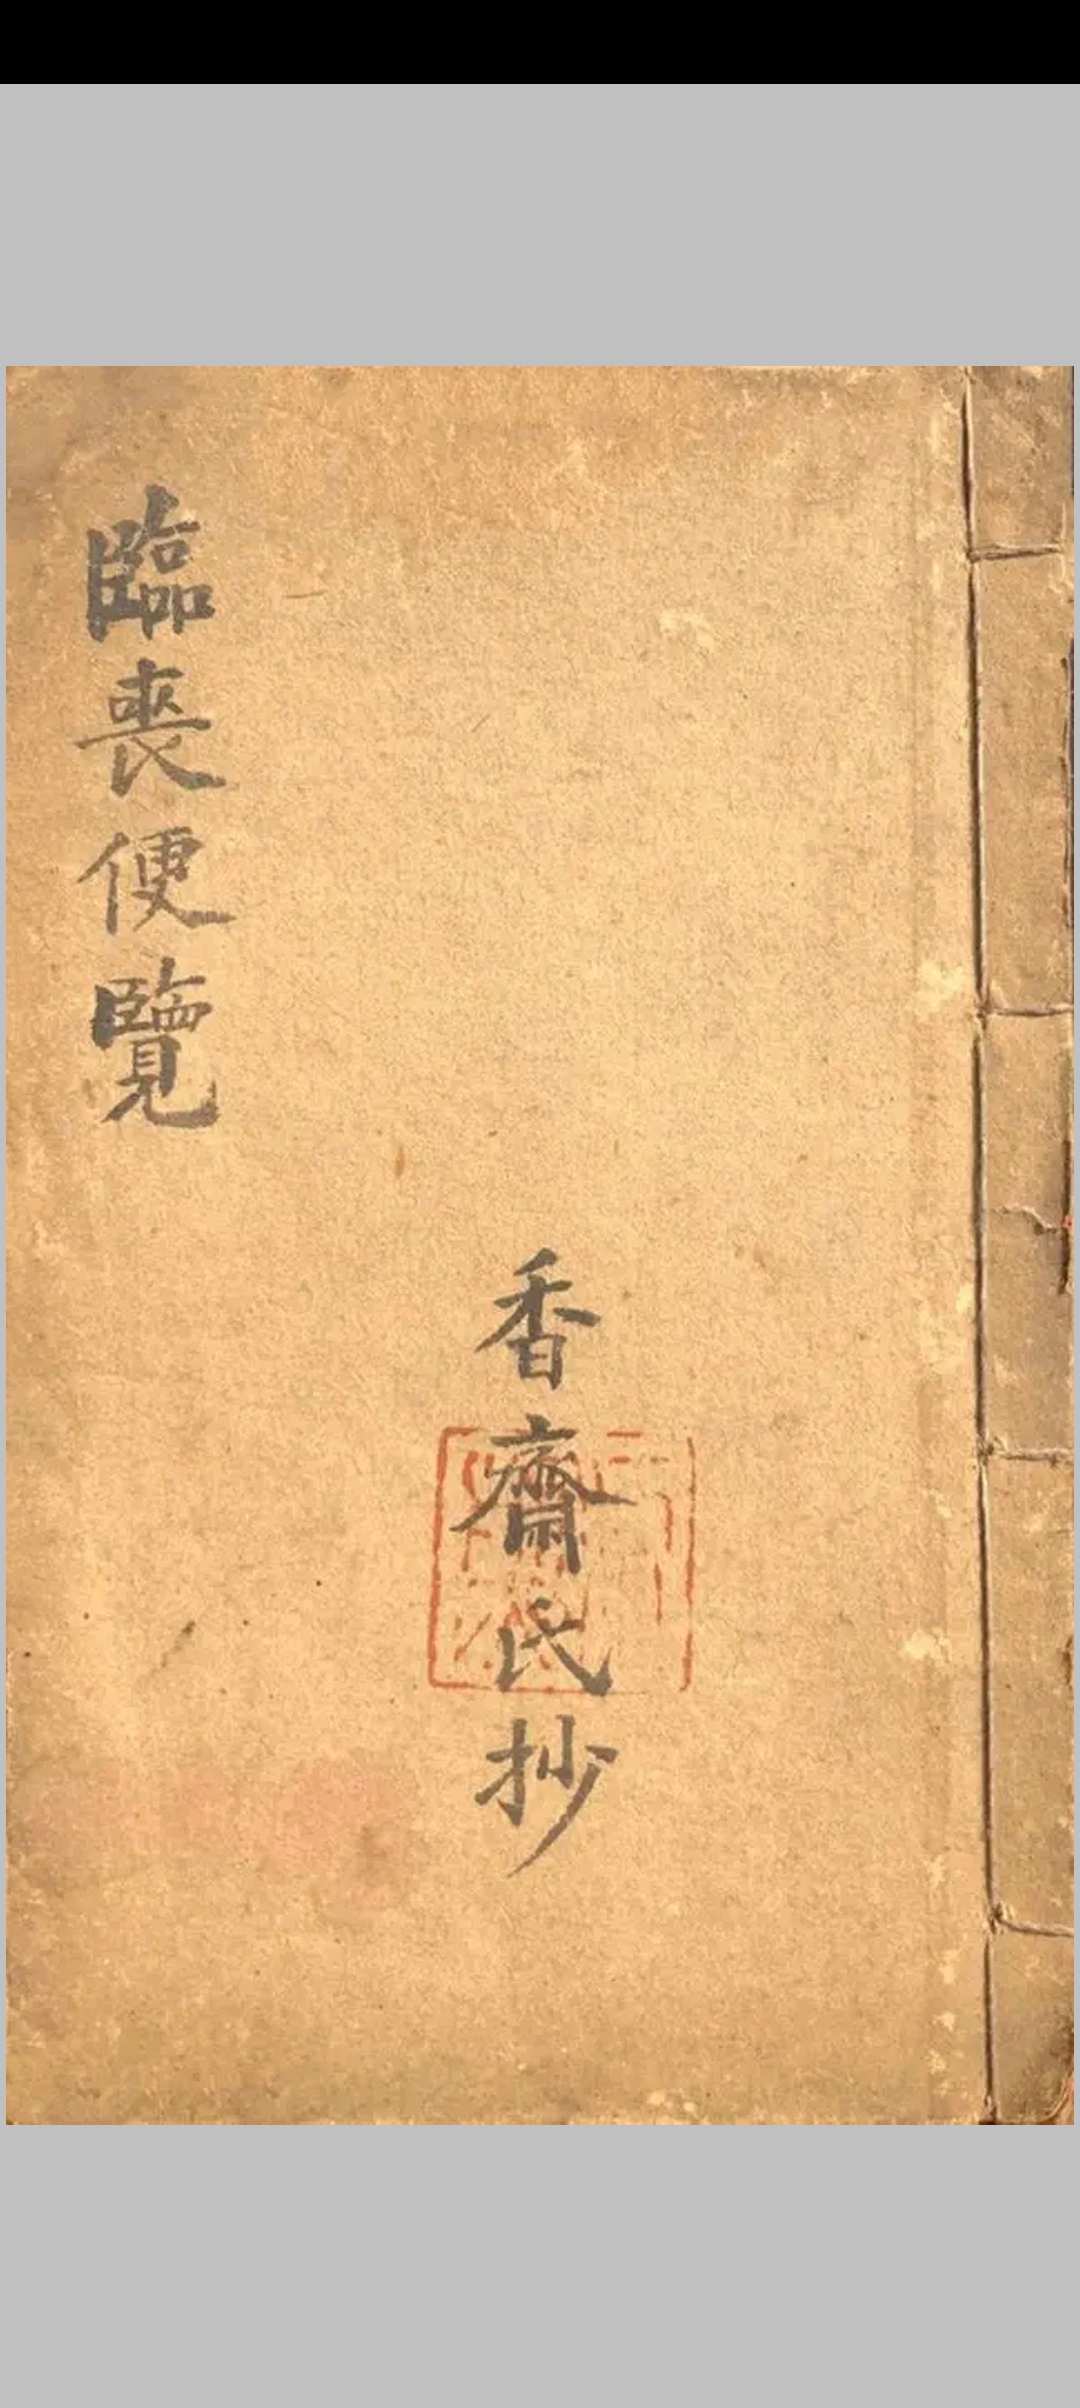 臨喪便覽
香齋氏抄